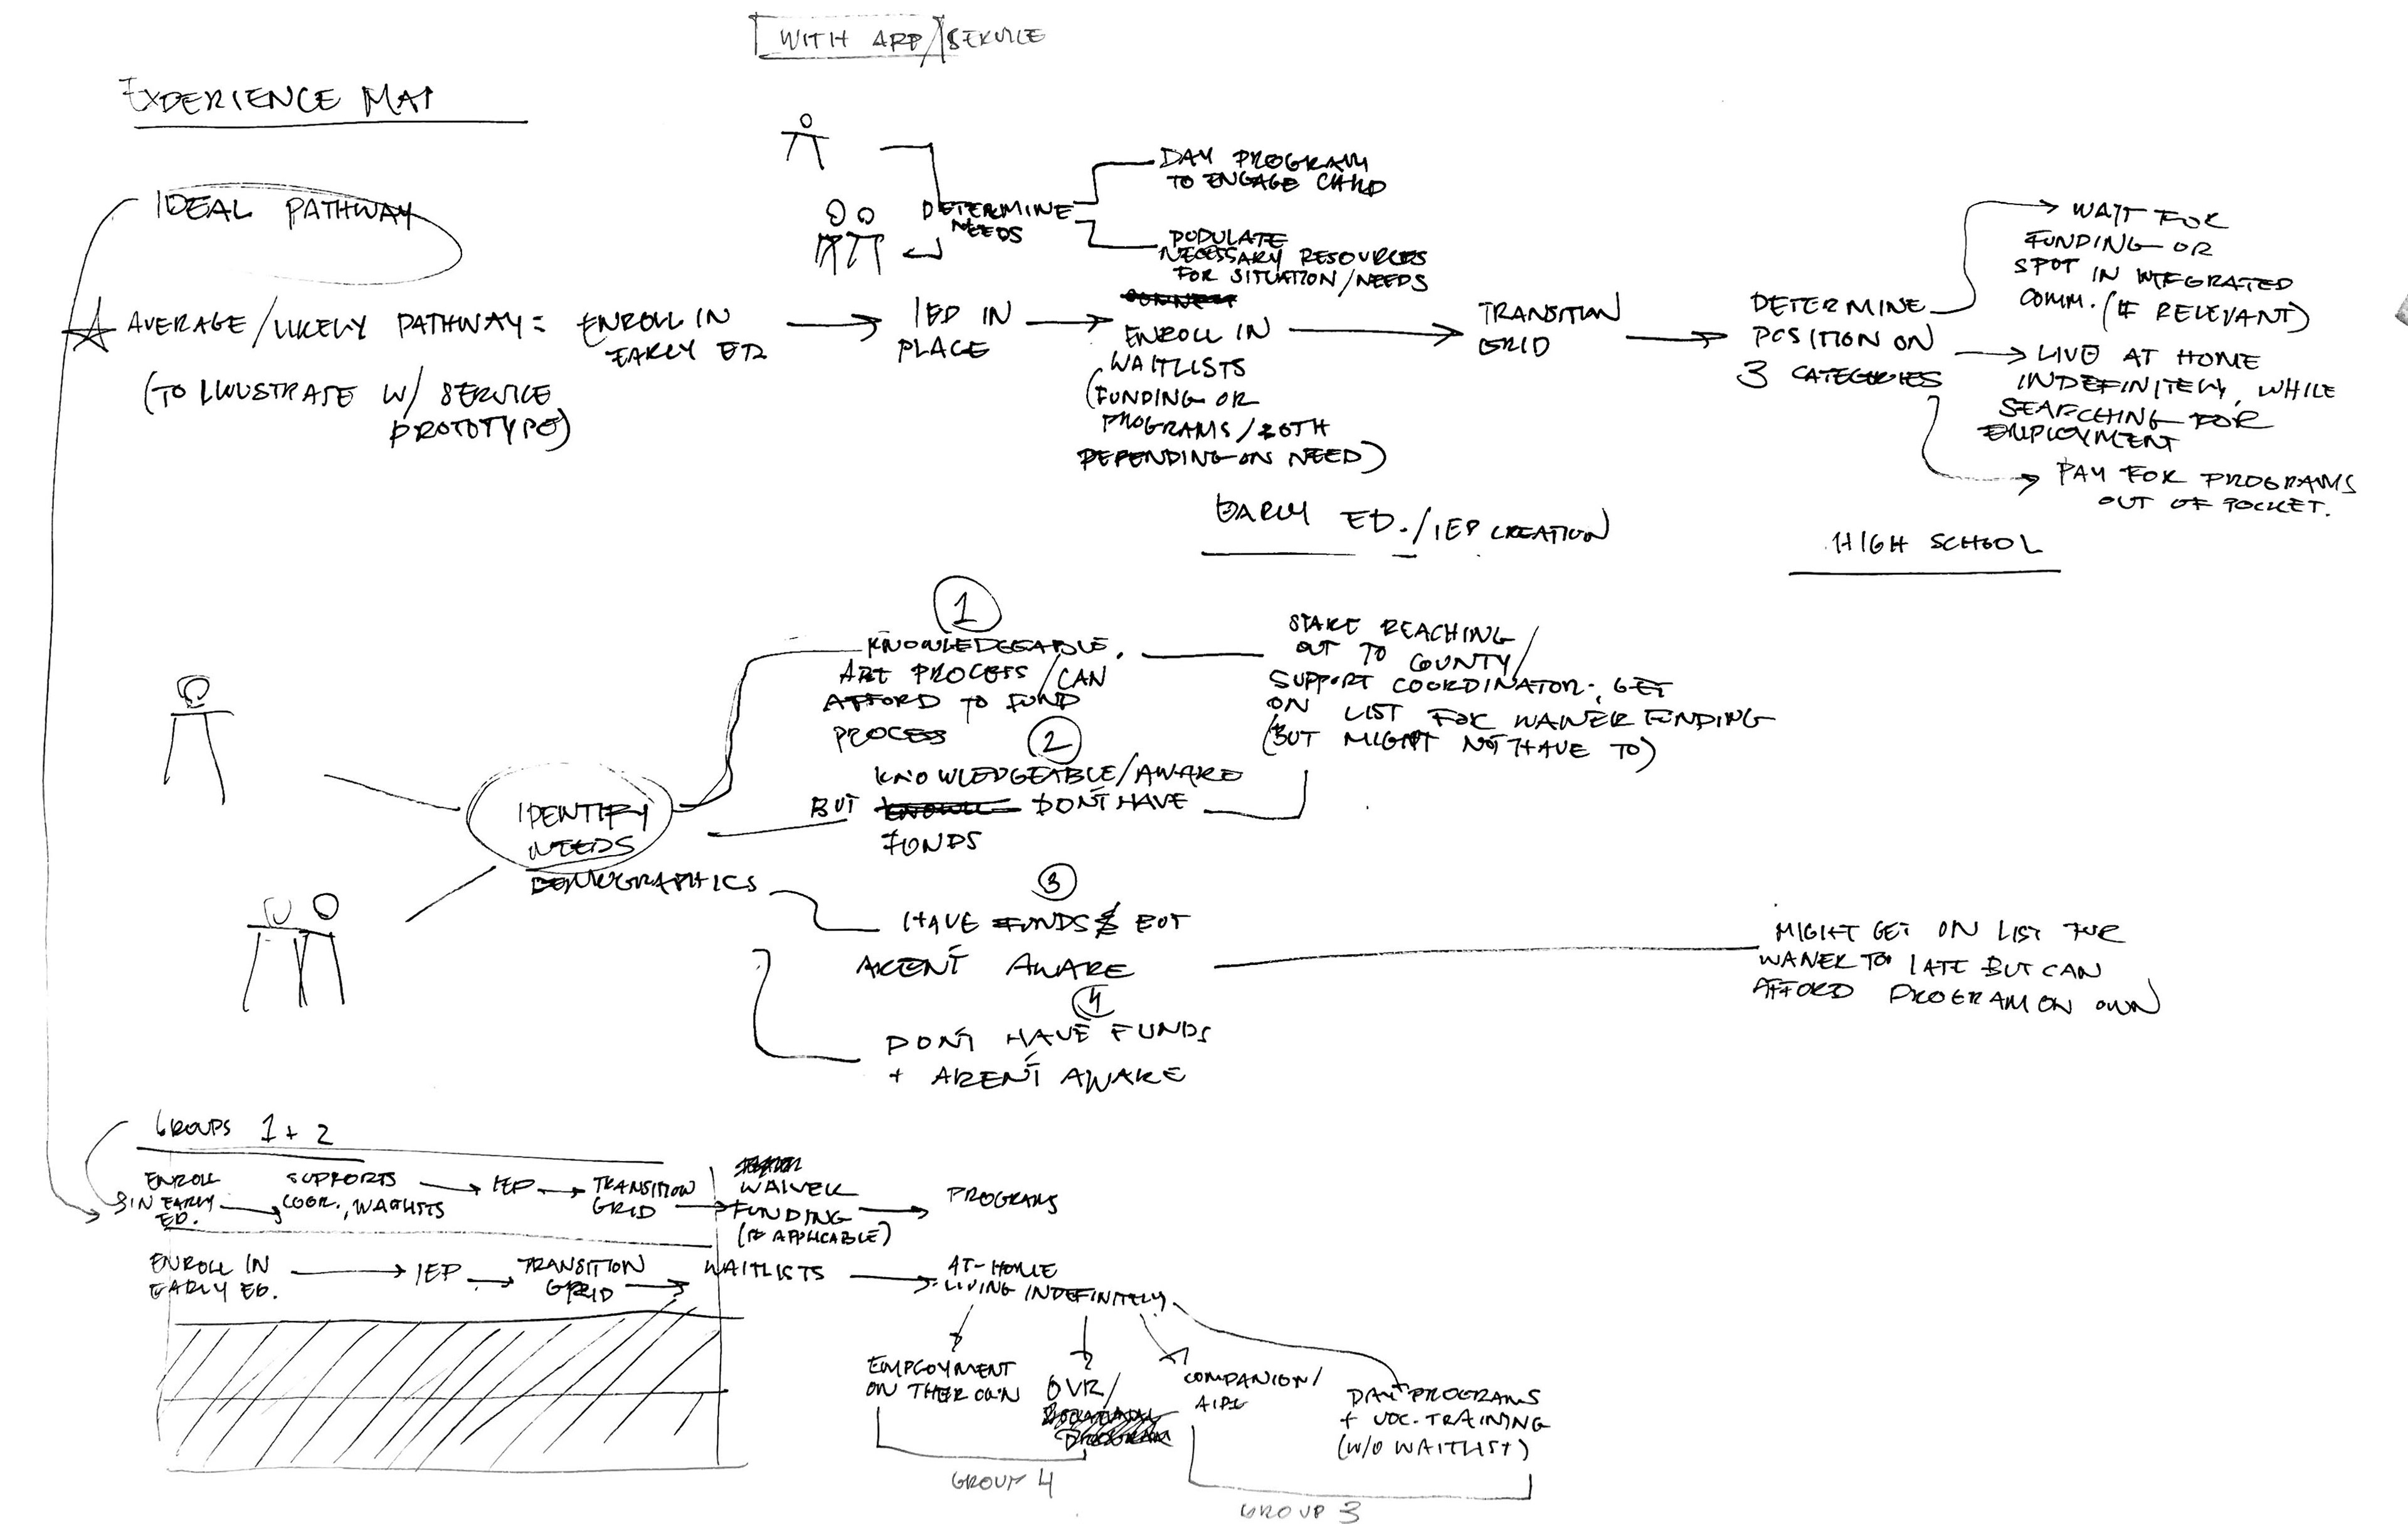 WITH APP/SERVICE
EXPERIENCE MAP
IDEAL PATHWAY
DETERMINE
NEEDS
DAY PROGRAM
TO ENGAGE CHILD
POPULATE
NECESSARY RESOURCES
FOR SITUATION/NEEDS
AVERAGE/LIKELY PATHWAY:
(TO ILLUSTRATE W/ SERVICE
PROTOTYPE)
ENROLL IN
EARLY ED
IEP IN
PLACE
ENROLL IN
WAITLISTS
(FUNDING OR
PROGRAMS/BOTH
DEPENDING ON NEED)
TRANSITION
GRID
DETERMINE
POSITION ON
3 CATEGORIES
WAIT FOR
FUNDING OR
SPOT IN INTEGRATED
COMM. (IF RELEVANT)
LIVE AT HOME
INDEFINITELY, WHILE
SEARCHING FOR
EMPLOYMENT
PAY FOR PROGRAMS
OUT OF POCKET.
EARLY ED./IEP CREATION
HIGH SCHOOL
IDENTIFY
NEEDS
DEMOGRAPHICS
1
KNOWLEDGEABLE,
PROCESS/CAN
AFFORD TO FUND
PROCESS
START REACHING
OUT TO COUNTY/
SUPPORT COORDINATOR, GET
ON LIST FOR WAIVER FUNDING
(BUT MIGHT NOT HAVE TO)
2
KNOWLEDGEABLE/AWARE
BUT DON'T HAVE
FUNDS
3
HAVE FUNDS BUT
AREN'T AWARE
MIGHT GET ON LIST FOR
WAIVER TO LATE BUT CAN
AFFORD PROGRAM ON OWN
4
DON'T HAVE FUNDS
+ AREN'T AWARE
GROUPS 1 + 2
ENROLL
IN EARLY
ED.
SUPPORTS
COOR., WAITLISTS
IEP
TRANSITION
GRID
WAIVER
FUNDING
(IF APPLICABLE)
PROGRAMS
ENROLL IN
EARLY ED.
IEP
TRANSITION
GRID
WAITLISTS
AT-HOME
LIVING INDEFINITELY
EMPLOYMENT
ON THEIR OWN
OVR/
COMPANION/
DAY PROGRAMS
+ VOC. TRAINING
(W/O WAITLIST)
GROUP 4
GROUP 3